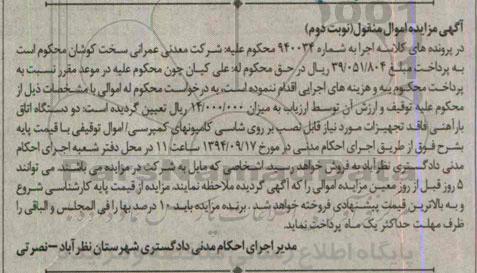 آگهی مزایده اموال منقول (نوبت دوم)
در پرونده های کلاسه اجرا به شماره ۹۴۰۰۳۴ محکوم علیه: شرکت معدنی عمرانی سخت کوشان محکوم است
به پرداخت مبلغ ۳۹/۰۵۱/۸۰۴ ریال در حق محکوم له: علی کیان چون محکوم علیه در موعد مقرر نسبت به
پرداخت محکوم به و هزینه های اجرایی اقدام ننموده است، به درخواست محکوم له اموالی با مشخصات ذیل از
محکوم علیه توقیف و ارزش آن توسط ارزیاب به میزان ۱۴/۰۰۰/۰۰۰ ریال تعیین گردیده است: دو دستگاه اتاق
بار آهنی فاقد تجهیزات مورد نیاز قابل نصب بر روی شاسی کامیونهای کمپرسی/ اموال توقیفی با قیمت پایه
بشرح فوق از طریق اجرای احکام مدنی در مورخ ۱۳۹۴/۰۹/۱۷ ساعت ۱۱ در محل دفتر شعبه اجرای احکام
مدنی دادگستری نظرآباد به فروش خواهد رسید. اشخاصی که مایل به شرکت در مزایده می باشند. می توانند
۵ روز قبل از روز معین مزایده اموالی را که آگهی گردیده ملاحظه نمایند. مزایده از قیمت پایه کارشناسی شروع
و به بالاترین قیمت پیشنهادی فروخته خواهد شد. برنده مزایده باید ۱۰ درصد بها را فی المجلس و الباقی را
ظرف مهلت حداکثر یک ماه پرداخت نماید.
مدیر اجرای احکام مدنی دادگستری شهرستان نظرآباد – نصرتی